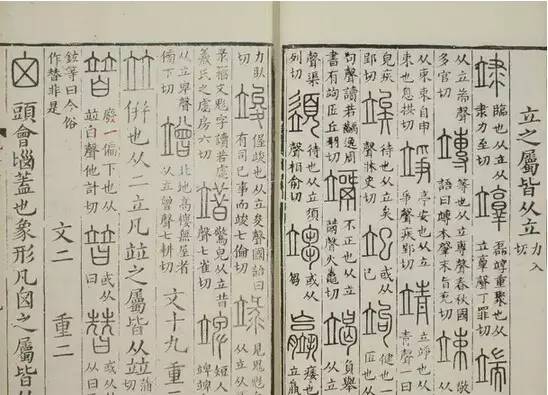 立之屬皆从立力入切
𥩣臨也从立从隶力至切𥪮磊𥪮重聚也从立𦎫聲丁罪切端
从立耑聲多官切竱等也从立專聲春秋國語曰竱本肇末旨兖切竦敬
从立从束束自申束也息拱切竫亭安也从立爭聲疾郢切靖立竫也从立青聲
皃疾郢切竢待也从立矣聲牀史切𥩠或从巳竘健也一匠也
句聲讀若齲逸周書有竘匠丘羽切𥪰不正也从立𣄴聲火鼃切竭負舉也从立
聲渠列切䇓待也从立須聲相俞切或从芻𥫌痿也从立
力臥切竣偓竣也从立夋聲國語曰有司已事而竣七倫切𥪀見鬼鬽从立从
录籒文鬽字讀若虙羲氏之虙房六切䇎驚皃从立昔聲七雀切䇑短人立
从立卑聲傍下切竲北地高樓無屋者从立曾聲七耕切文十九 重二
竝併也从二立凡竝之屬皆从竝蒲
暜廢一偏下也从竝白聲他計切暜或从曰暜或从从曰
鉉等曰今俗作替非是 文二 重二
囟頭會匘蓋也象形凡囟之屬皆从